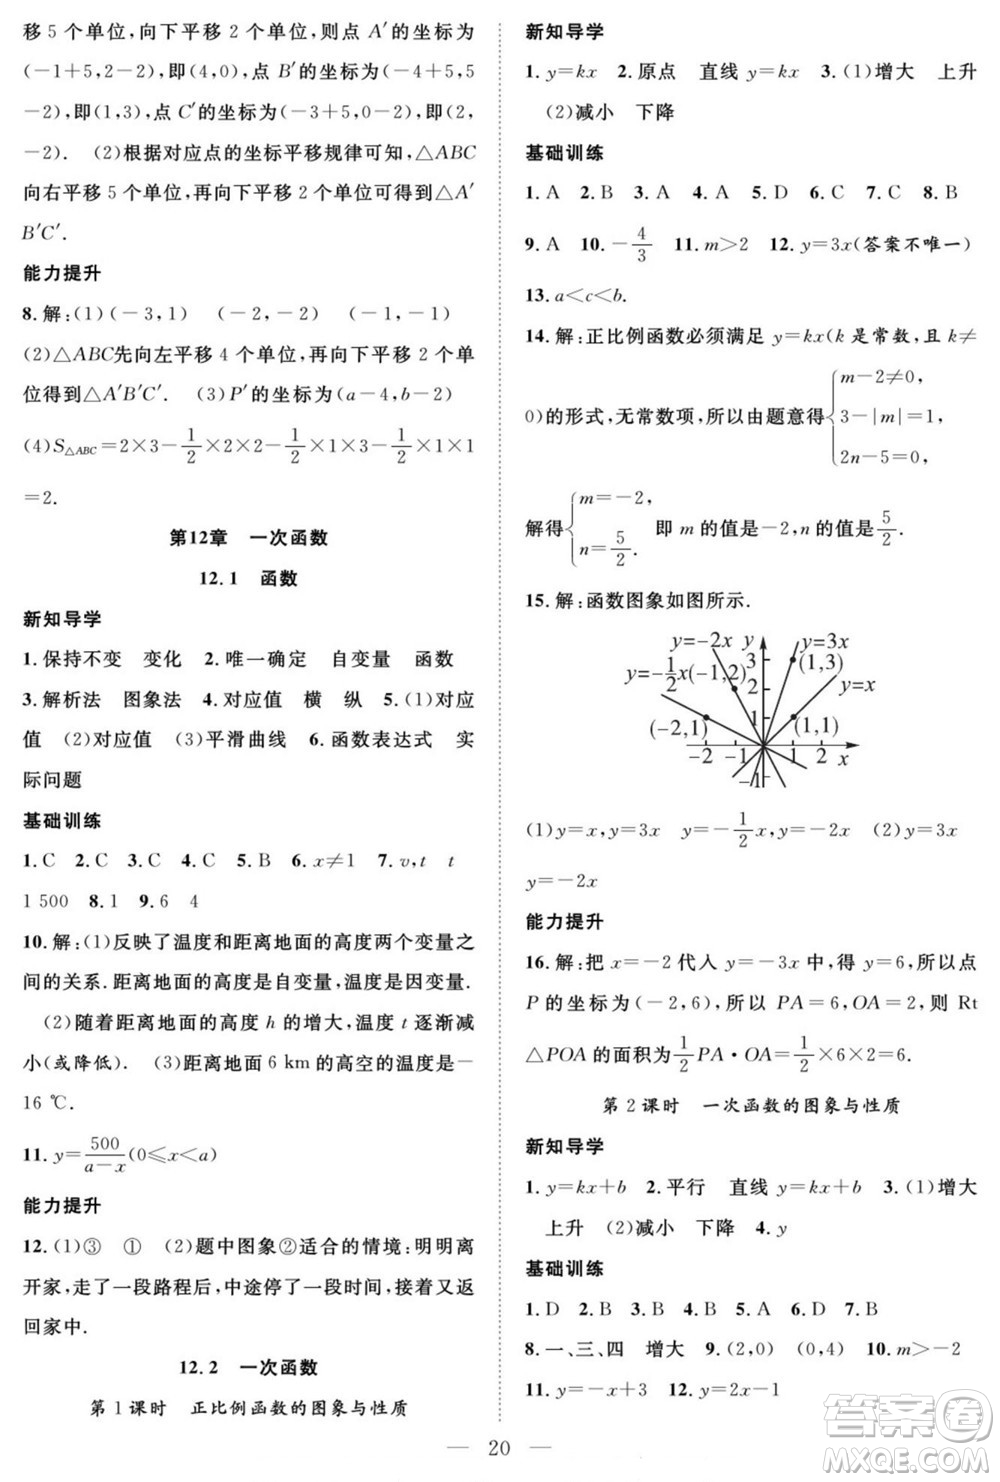 移 5 个单位,向下平移 2 个单位,则点 A′的坐标为
(-1+5,2-2),即(4,0),点 B′的坐标为(-4+5,5
-2),即(1,3),点 C′的坐标为(-3+5,0-2),即(2,
-2). (2)根据对应点的坐标平移规律可知,△ABC
向右平移 5 个单位,再向下平移 2 个单位可得到△A′
B′C′.
能力提升
8.解:(1)(-3,1) (-2,-2) (-1,-1)
(2)△ABC先向左平移 4 个单位,再向下平移 2 个单
位得到△A′B′C′. (3)P′的坐标为(a-4,b-2)
(4)S△ABC=2×3-1/2×2×2-1/2×3×1-1/2×1×1
=2.
第12章 一次函数
12.1 函数
新知导学
1.保持不变 变化 2.唯一确定 自变量 函数
3.解析法 图象法 4.对应值 横 纵 5.(1)对应
值 (2)对应值 (3)平滑曲线 6.函数表达式 实
际问题
基础训练
1.C 2.C 3.C 4.C 5.B 6.x≠1 7.v,t t
1 500 8.1 9.6 4
10.解:(1)反映了温度和距离地面的高度两个变量之
间的关系.距离地面的高度是自变量,温度是因变量.
(2)随着距离地面的高度 h 的增大,温度 t 逐渐减
小(或降低). (3)距离地面 6 km 的高空的温度是-
16 ℃.
11.y=500/(a-x)(0≤x<a)
能力提升
12.(1)③ ① (2)题中图象②适合的情境:明明离
开家,走了一段路程后,中途停了一段时间,然后又返
回家中.
12.2 一次函数
第 1 课时 正比例函数的图象与性质
新知导学
1.y=kx 2.原点 直线 y=kx 3.(1)增大 上升
(2)减小 下降
基础训练
1.A 2.B 3.A 4.A 5.D 6.C 7.C 8.B
9.A 10.-4/3 11.m>2 12.y=3x(答案不唯一)
13.a<c<b.
14.解:正比例函数必须满足 y=kx(k 是常数,且 k≠
0)的形式,无常数项,所以由题意得{m-2≠0,
3-|m|=1,
2n-5=0,
解得{m=-2,
n=5/2. 即 m 的值是-2,n 的值是5/2.
15.解:函数图象如图所示.
y=-2x y y=3x
y=-1/2x (-1,2) 3 (1,3)
2 y=x
(-2,1) 1 (1,1)
-2 -1 1 2 x
-1
(1)y=x,y=3x y=-1/2x,y=-2x (2)y=3x
y=-2x
能力提升
16.解:把 x=-2 代入 y=-3x 中,得 y=6,所以点
P 的坐标为(-2,6),所以 PA=6,OA=2,则 Rt
△POA 的面积为1/2PA·OA=1/2×6×2=6.
第 2 课时 一次函数的图象与性质
新知导学
1.y=kx+b 2.平行 直线 y=kx+b 3.(1)增大
上升 (2)减小 下降 4.y
基础训练
1.D 2.B 3.B 4.B 5.A 6.D 7.B
8.一、三、四 增大 9.(2,0) (0,4) 10.m>-2
11.y=-x+3 12.y=2x-1
20
答案卷
MXQE.COM